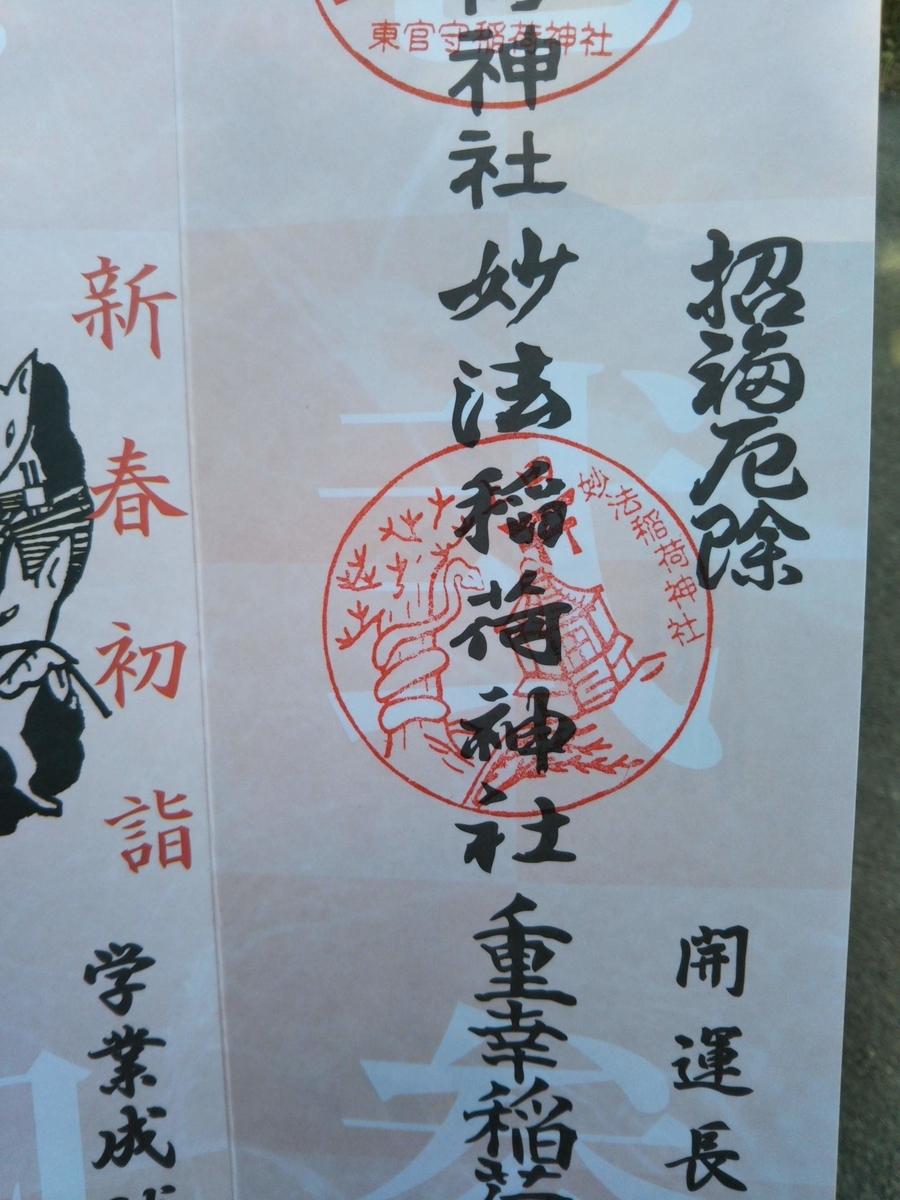 招福厄除
開運長
東官守稲荷神社
神社
妙法稲荷神社
妙法稲荷神社
重幸稲荷
新春初詣
学業成